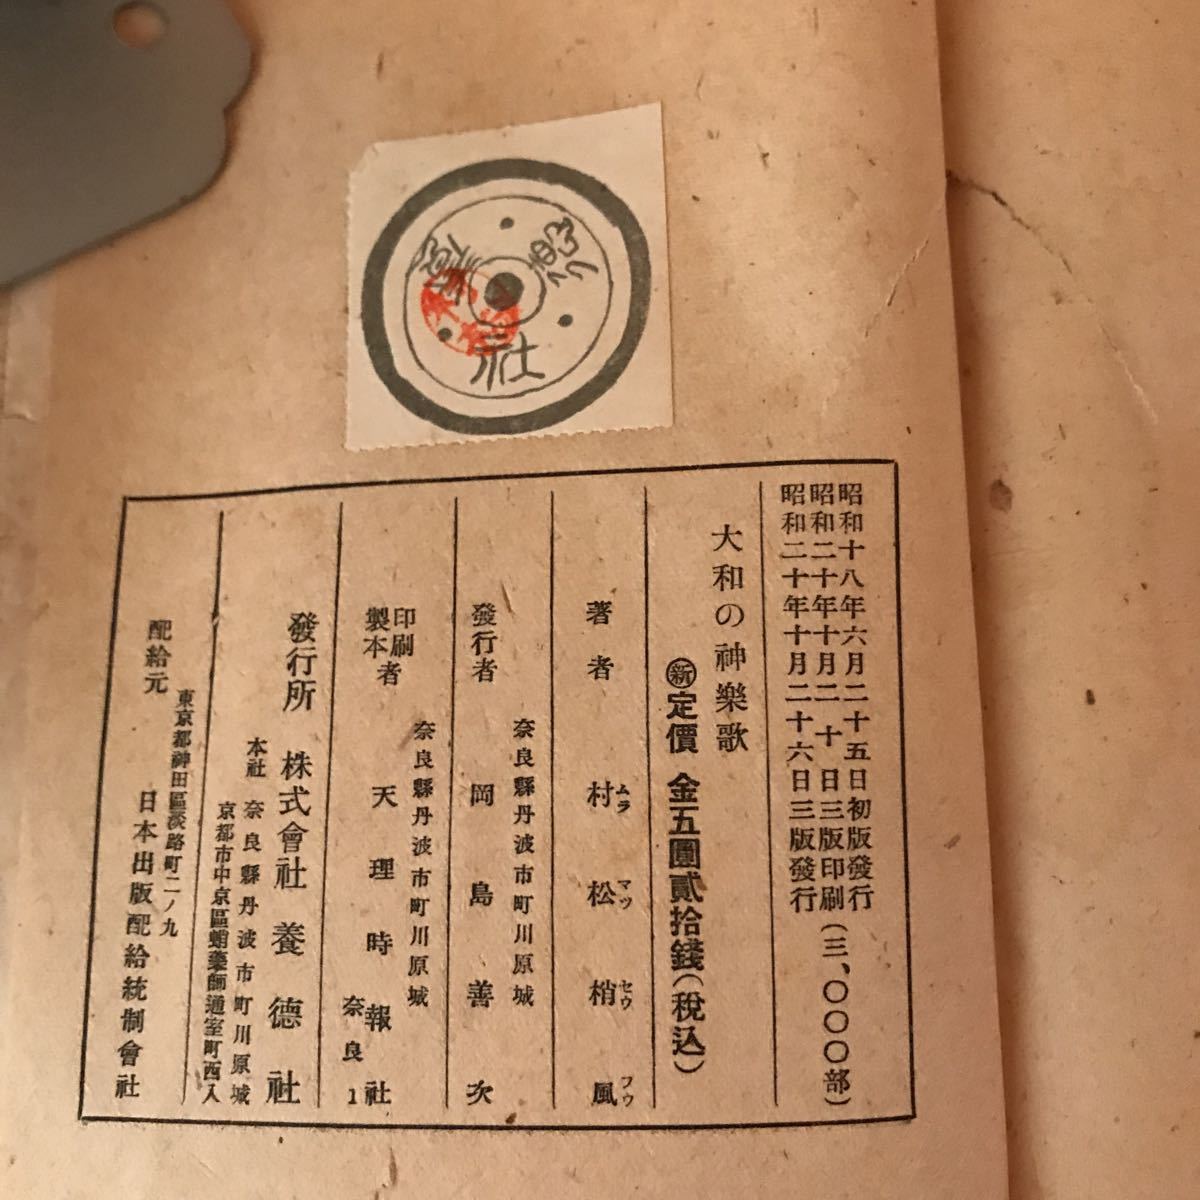 養
德
社
昭和十八年六月二十五日初版發行
昭和二十年十月二十日三版印刷(三、〇〇〇部)
昭和二十年十月二十六日三版發行
大和の神樂歌
新定價 金五圓貳拾錢(税込)
著者 村松梢風
ムラ マツ セウ フウ
奈良縣丹波市町川原城
發行者 岡島善次
奈良縣丹波市町川原城
印刷
製本者 天理時報社
奈良1
發行所 株式會社養德社
本社 奈良縣丹波市町川原城
京都市中京區蛸藥師通室町西入
東京都神田區淡路町二ノ九
配給元 日本出版配給統制會社